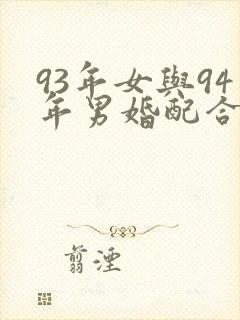 93年女與94
年男婚配合
翦湮